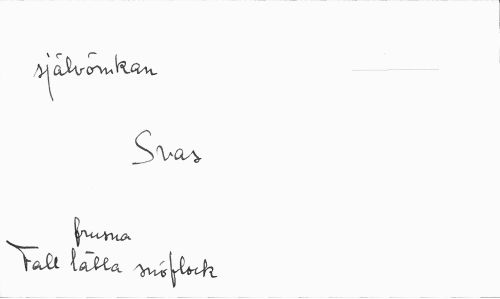 självömkan
Svas
frusna
Fall lätta snöflock